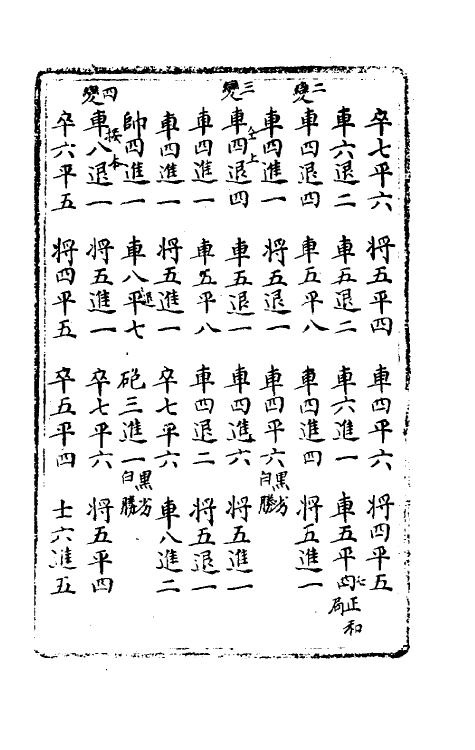 卒七平六 将五平四 車四平六 将四平五
車六退二 車五退二 車六進一 車五平四 正和局
二變
車四退四 車五平八 車四進四 将五進一
車四進一 将五退一 車四平六 黑劣白勝
三變
車四退四 車五退一 車四進六 将五進一
車四進一 車五平八 車四退二 将五退一
車四進一 将五進一 卒七平六 車八進二
帥四進一 車八平七 砲三進一 黑劣白勝
四變
車八退一 将五進一 卒七平六 将五平四
卒六平五 将四平五 卒五平四 士六進五